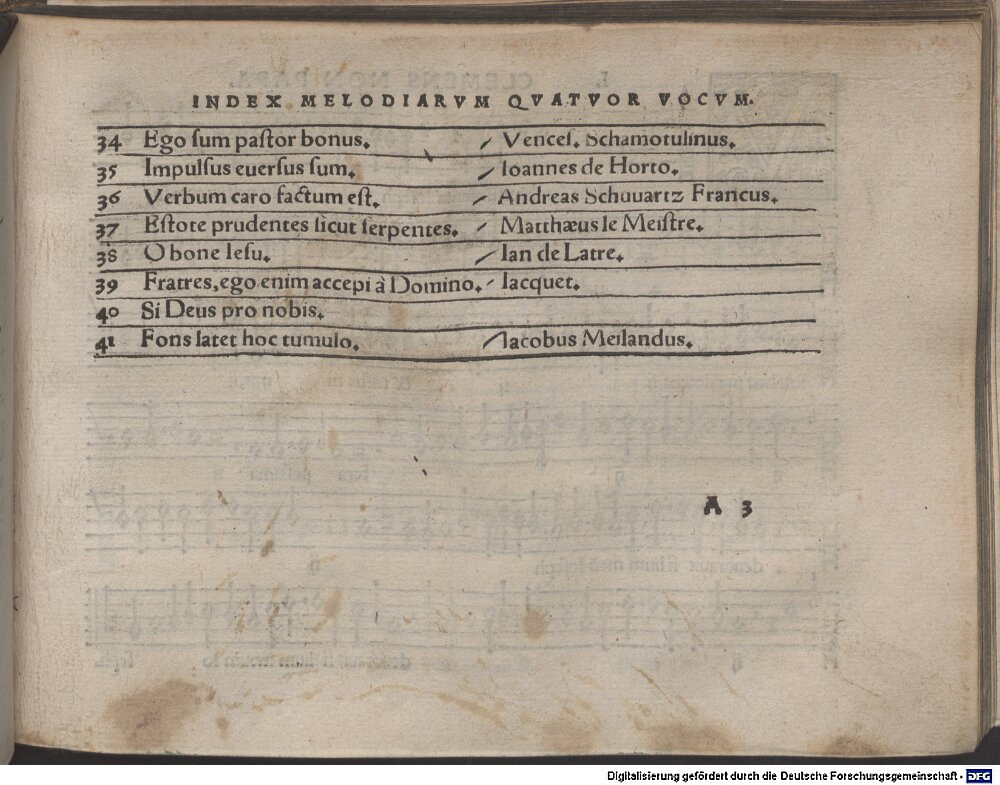 INDEX MELODIARVM QVATVOR VOCVM.
34 Ego ſum paſtor bonus. Venceſ. Schamotulinus.
35 Impulſus euerſus ſum. Ioannes de Horto.
36 Verbum caro factum eſt. Andreas Schuuartz Francus.
37 Eſtote prudentes ſicut ſerpentes. Matthæus le Meiſtre.
38 O bone Ieſu. Ian de Latre.
39 Fratres, ego enim accepi à Domino. Iacquet.
40 Si Deus pro nobis.
41 Fons latet hoc tumulo. Iacobus Meilandus.
A 3
Digitalisierung gefördert durch die Deutsche Forschungsgemeinschaft - DFG